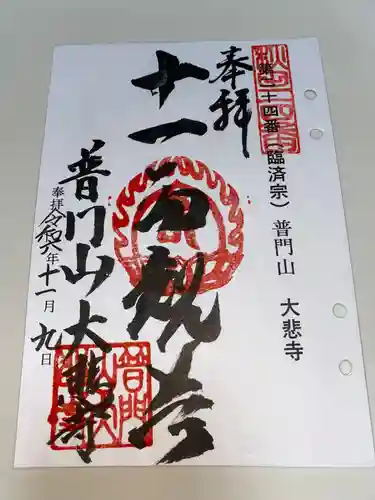 第二十四番(臨済宗)普門山 大悲寺
奉拝
十一面観音
普門山大悲寺
奉拝 令和六年十一月九日